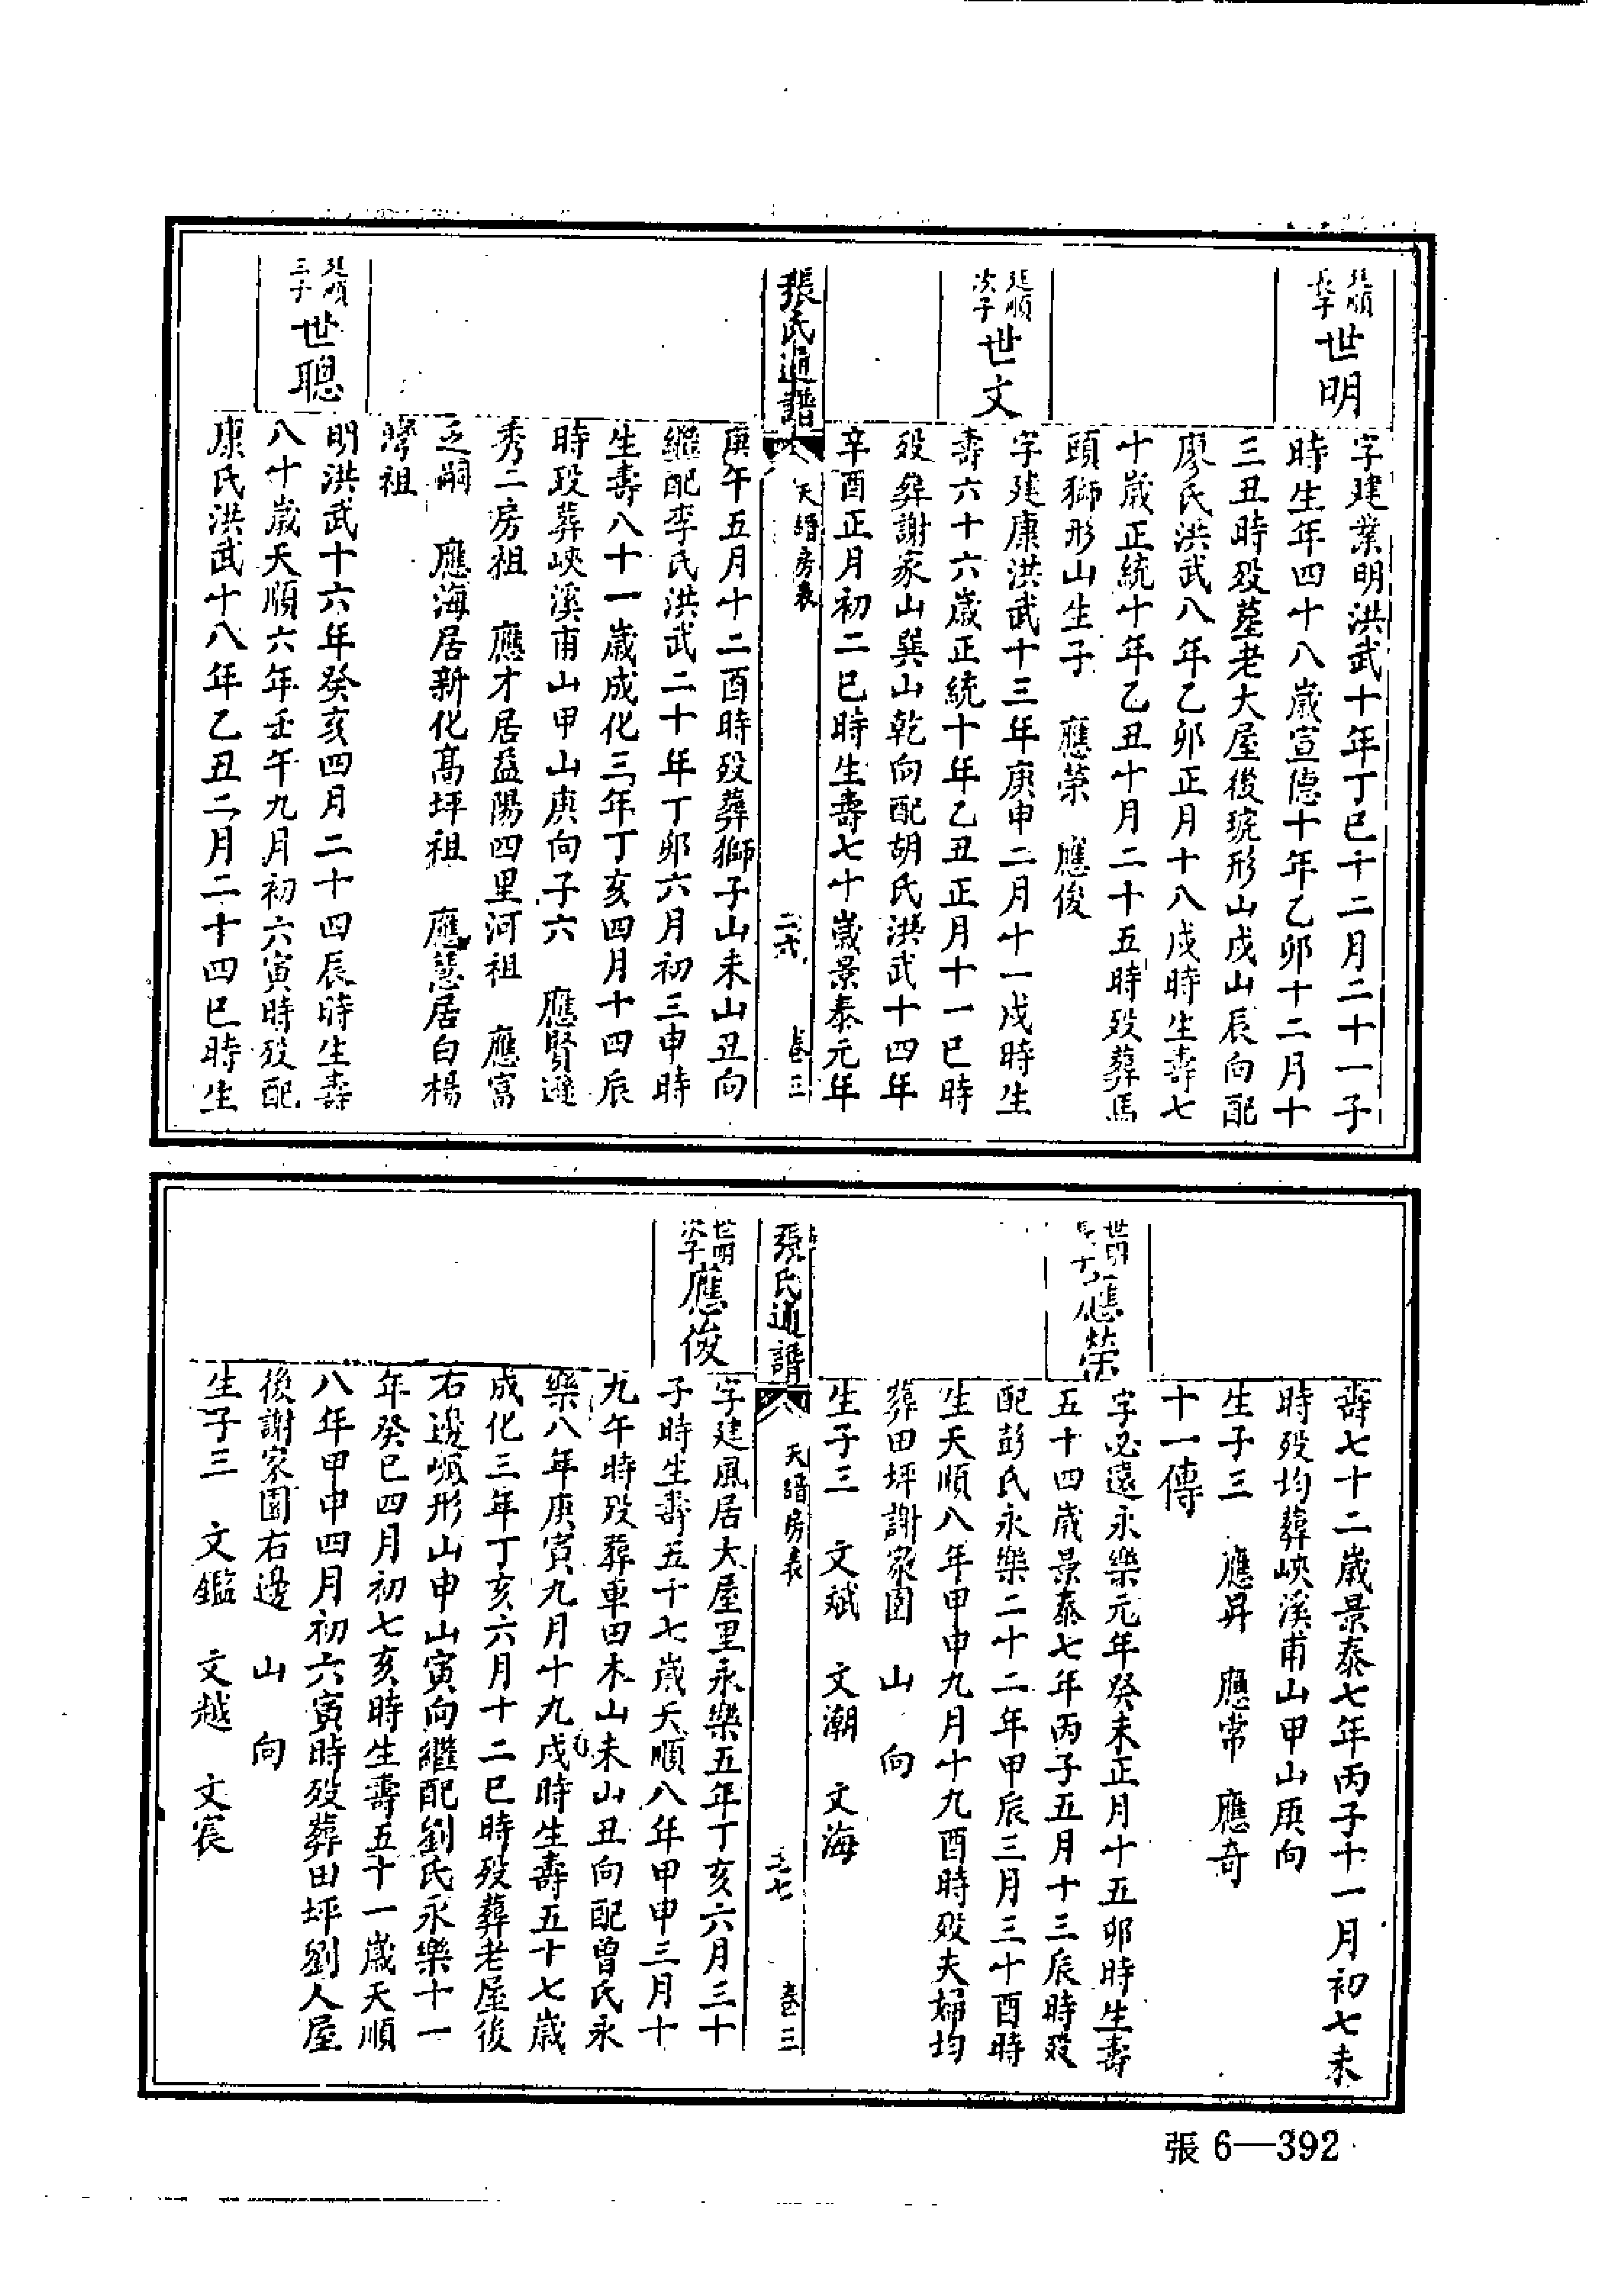 世明
字建業明洪武十年丁巳十二月二十一子
時生年四十八歲宣德十年乙卯十二月十
三丑時歿墓老大屋後琬形山戌山辰向配
廖氏洪武八年乙卯正月十八戌時生壽七
十歲正統十年乙丑十月二十五時歿葬馬
頭獅形山生子 應榮 應俊
次子
世文
字建康洪武十三年庚申二月十一戌時生
壽六十六歲正統十年乙丑正月十一巳時
歿葬謝家山巽山乾向配胡氏洪武十四年
辛酉正月初二巳時生壽七十歲景泰元年
張氏通譜
天縉房表
二六
卷三
庚午五月十二酉時歿葬獅子山未山丑向
繼配李氏洪武二十年丁卯六月初三申時
生壽八十一歲成化三年丁亥四月十四辰
時歿葬峽溪甫山甲山庚向子六 應賢遊
秀二房祖 應才居益陽四里河祖 應富
乏嗣 應海居新化高坪祖 應慧居白楊
灣祖
三子
世聰
明洪武十六年癸亥四月二十四辰時生壽
八十歲天順六年壬午九月初六寅時歿配
康氏洪武十八年乙丑二月二十四巳時生
壽七十二歲景泰七年丙子十一月初七未
時歿均葬峽溪甫山甲山庚向
生子三 應昇 應常 應奇
十一傳
世明
應榮
字必遠永樂元年癸未正月十五卯時生壽
五十四歲景泰七年丙子五月十三辰時歿
配彭氏永樂二十二年甲辰三月三十酉時
生天順八年甲申九月十九酉時歿夫婦均
葬田坪謝家園 山 向
生子三 文斌 文潮 文海
張氏通譜
天縉房表
二七
卷三
世明
次子
應俊
字建風居大屋里永樂五年丁亥六月三十
子時生壽五十七歲天順八年甲申三月十
九午時歿葬車田木山未山丑向配曾氏永
樂八年庚寅九月十九戌時生壽五十七歲
成化三年丁亥六月十二巳時歿葬老屋後
右邊形山申山寅向繼配劉氏永樂十一
年癸巳四月初七亥時生壽五十一歲天順
八年甲申四月初六寅時歿葬田坪劉人屋
後謝家園右邊 山 向
生子三 文鑑 文越 文宸
張6—392